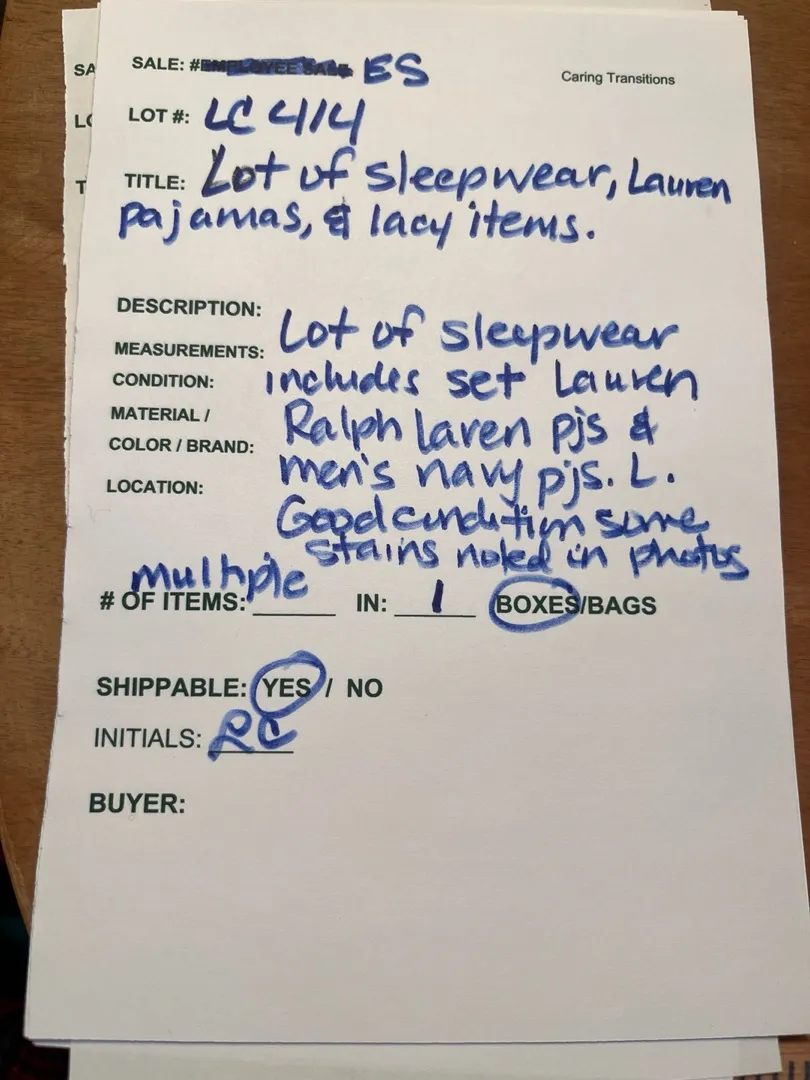 SALE: #EMPLOYEE SALE ES
Caring Transitions
LOT #: LC 414
TITLE: Lot of sleepwear, Lauren
pajamas, & lacy items.
DESCRIPTION:
MEASUREMENTS: Lot of sleepwear
CONDITION: includes set Lauren
MATERIAL / Ralph Laren pjs &
COLOR / BRAND: men's navy pjs. L.
LOCATION: Good condition some
stains noted in photos
multiple
# OF ITEMS: IN: 1 BOXES/BAGS
SHIPPABLE: YES / NO
INITIALS: RC
BUYER:
SA
LO
T